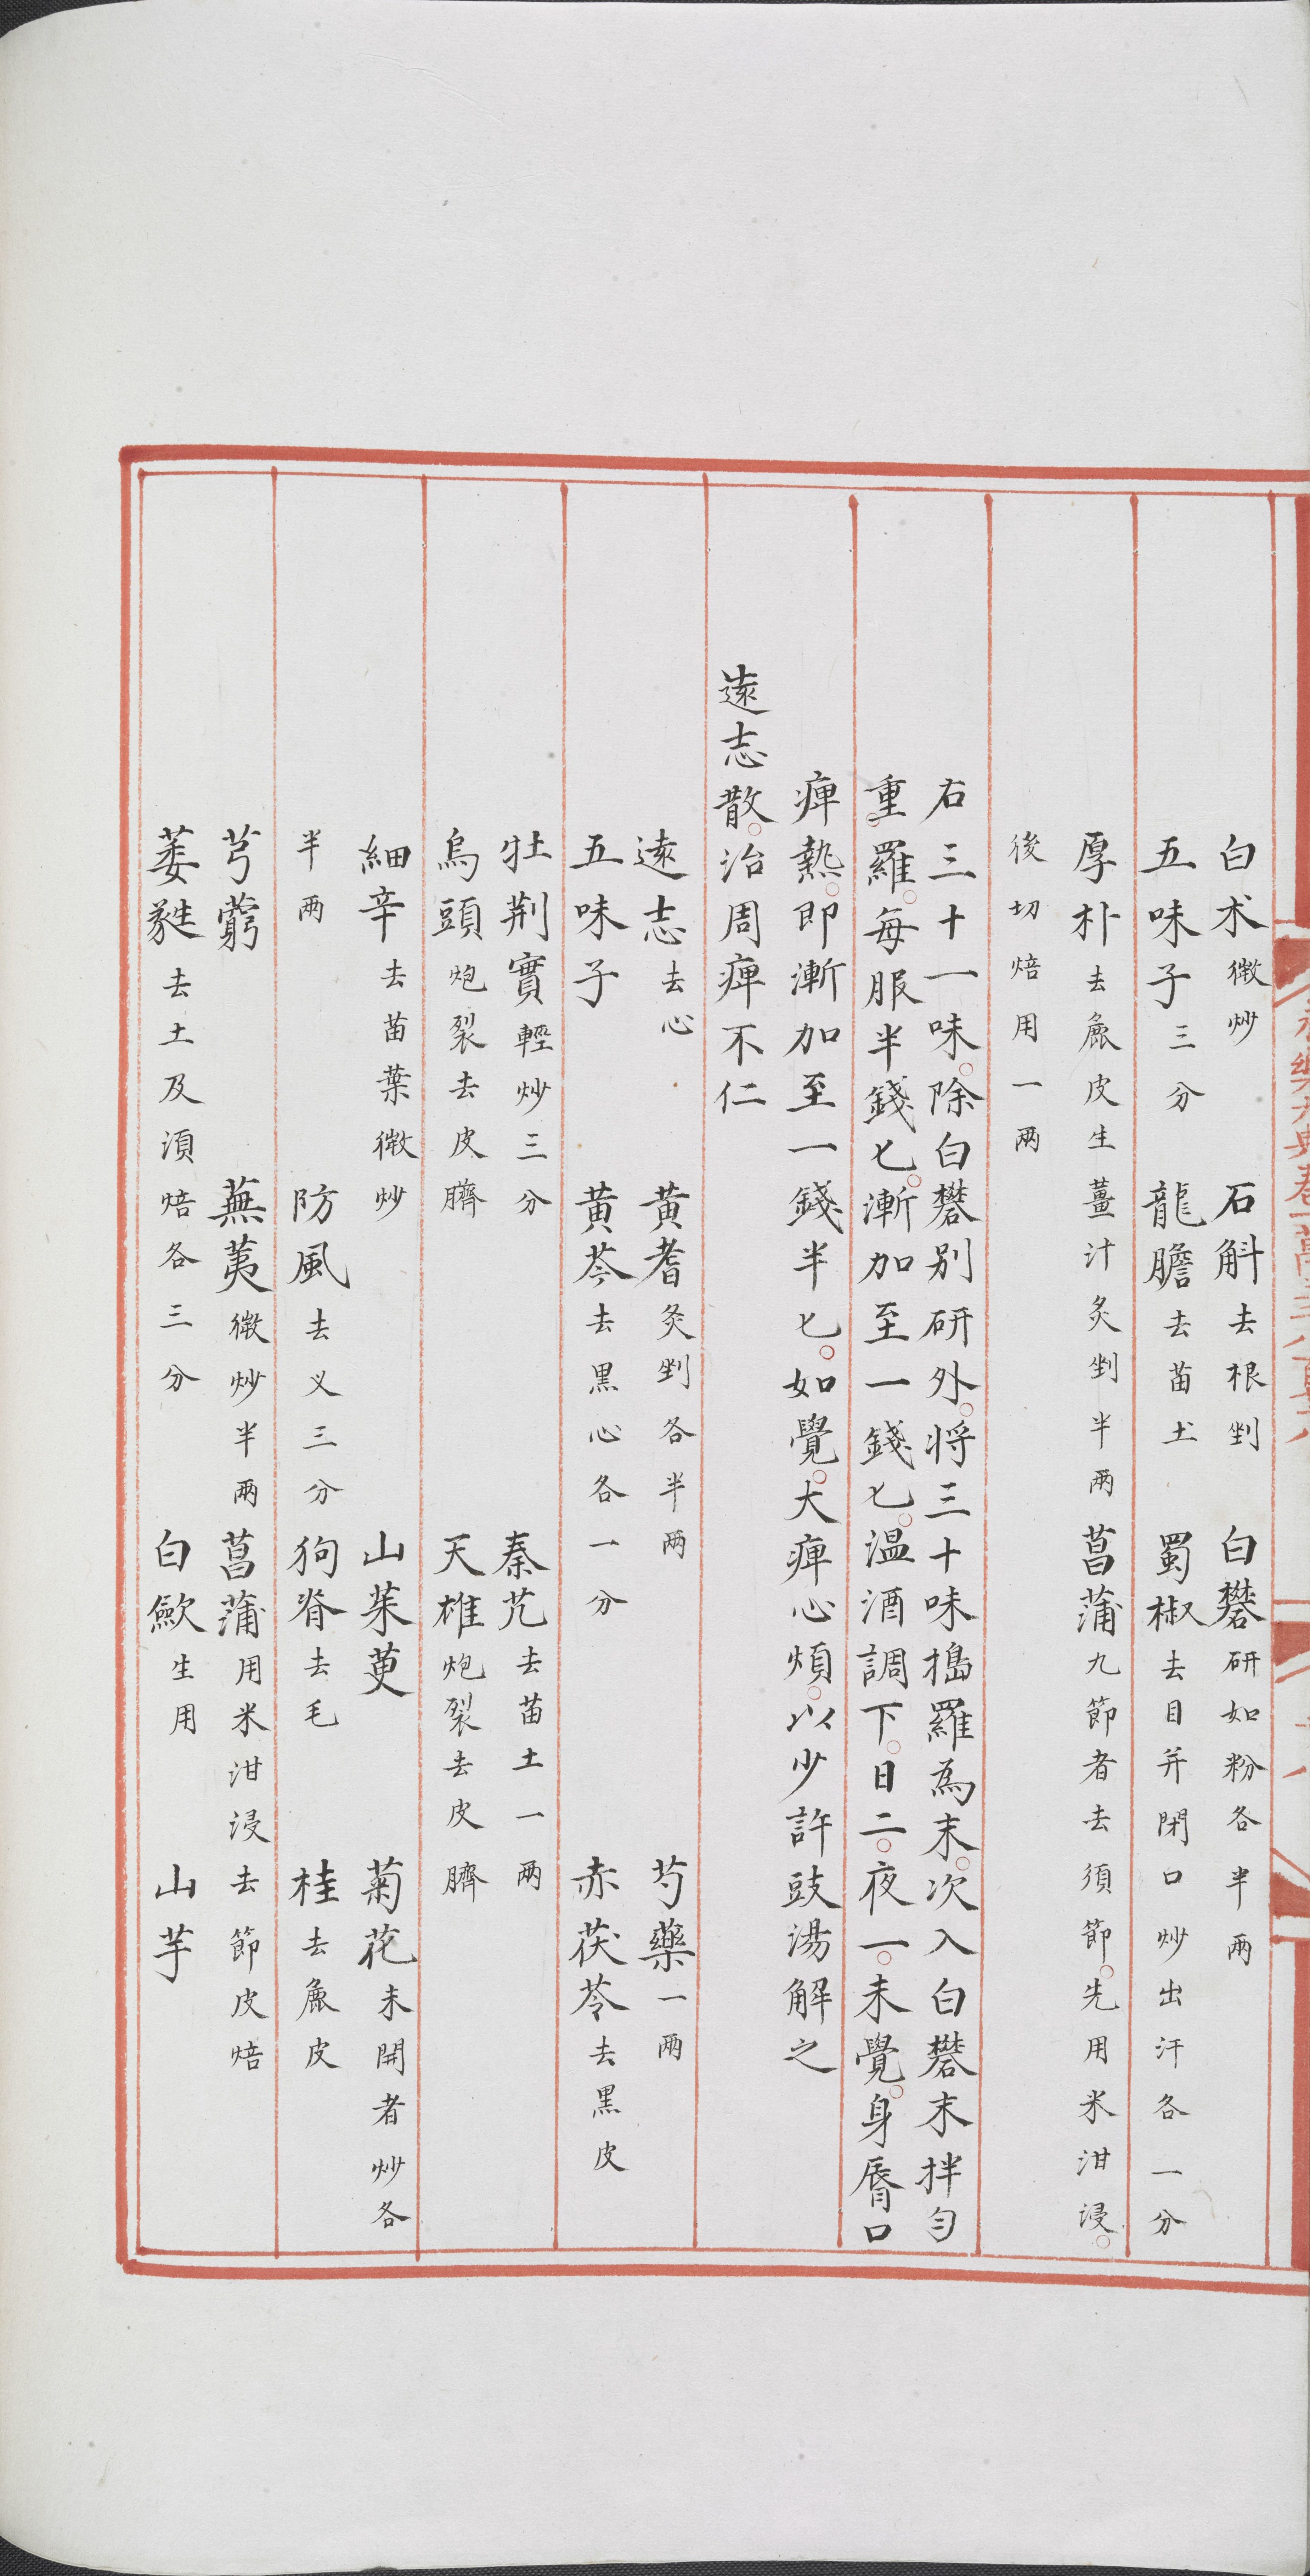 永樂大典卷一萬三千八百
白术微炒 石斛去根剉 白礬研如粉各半兩
五味子三分 龍膽去苗土 蜀椒去目并閉口炒出汗各一分
厚朴去麄皮生薑汁炙剉半兩 菖蒲九節者去須節。先用米泔浸。
後切焙用一兩
右三十一味。除白礬别研外。将三十味搗羅為末。次入白礬末拌匀
重羅。每服半錢匕。漸加至一錢匕。温酒調下。日二。夜一。未覺。身脣口
痺熱。即漸加至一錢半匕。如覺。大痺心煩。以少許豉湯解之
遠志散。治周痺不仁
遠志去心 黄耆炙剉各半兩 芍藥一兩
五味子 黄芩去黒心各一分 赤茯苓去黒皮
牡荆實輕炒三分 秦艽去苗土一兩
烏頭炮裂去皮臍 天雄炮裂去皮臍
細辛去苗葉微炒 山茱萸 菊花未開者炒各
半兩 防風去义三分 狗脊去毛 桂去麄皮
芎藭 蕪荑微炒半兩 菖蒲用米泔浸去節皮焙
萎蕤去土及湏焙各三分 白歛生用 山芋